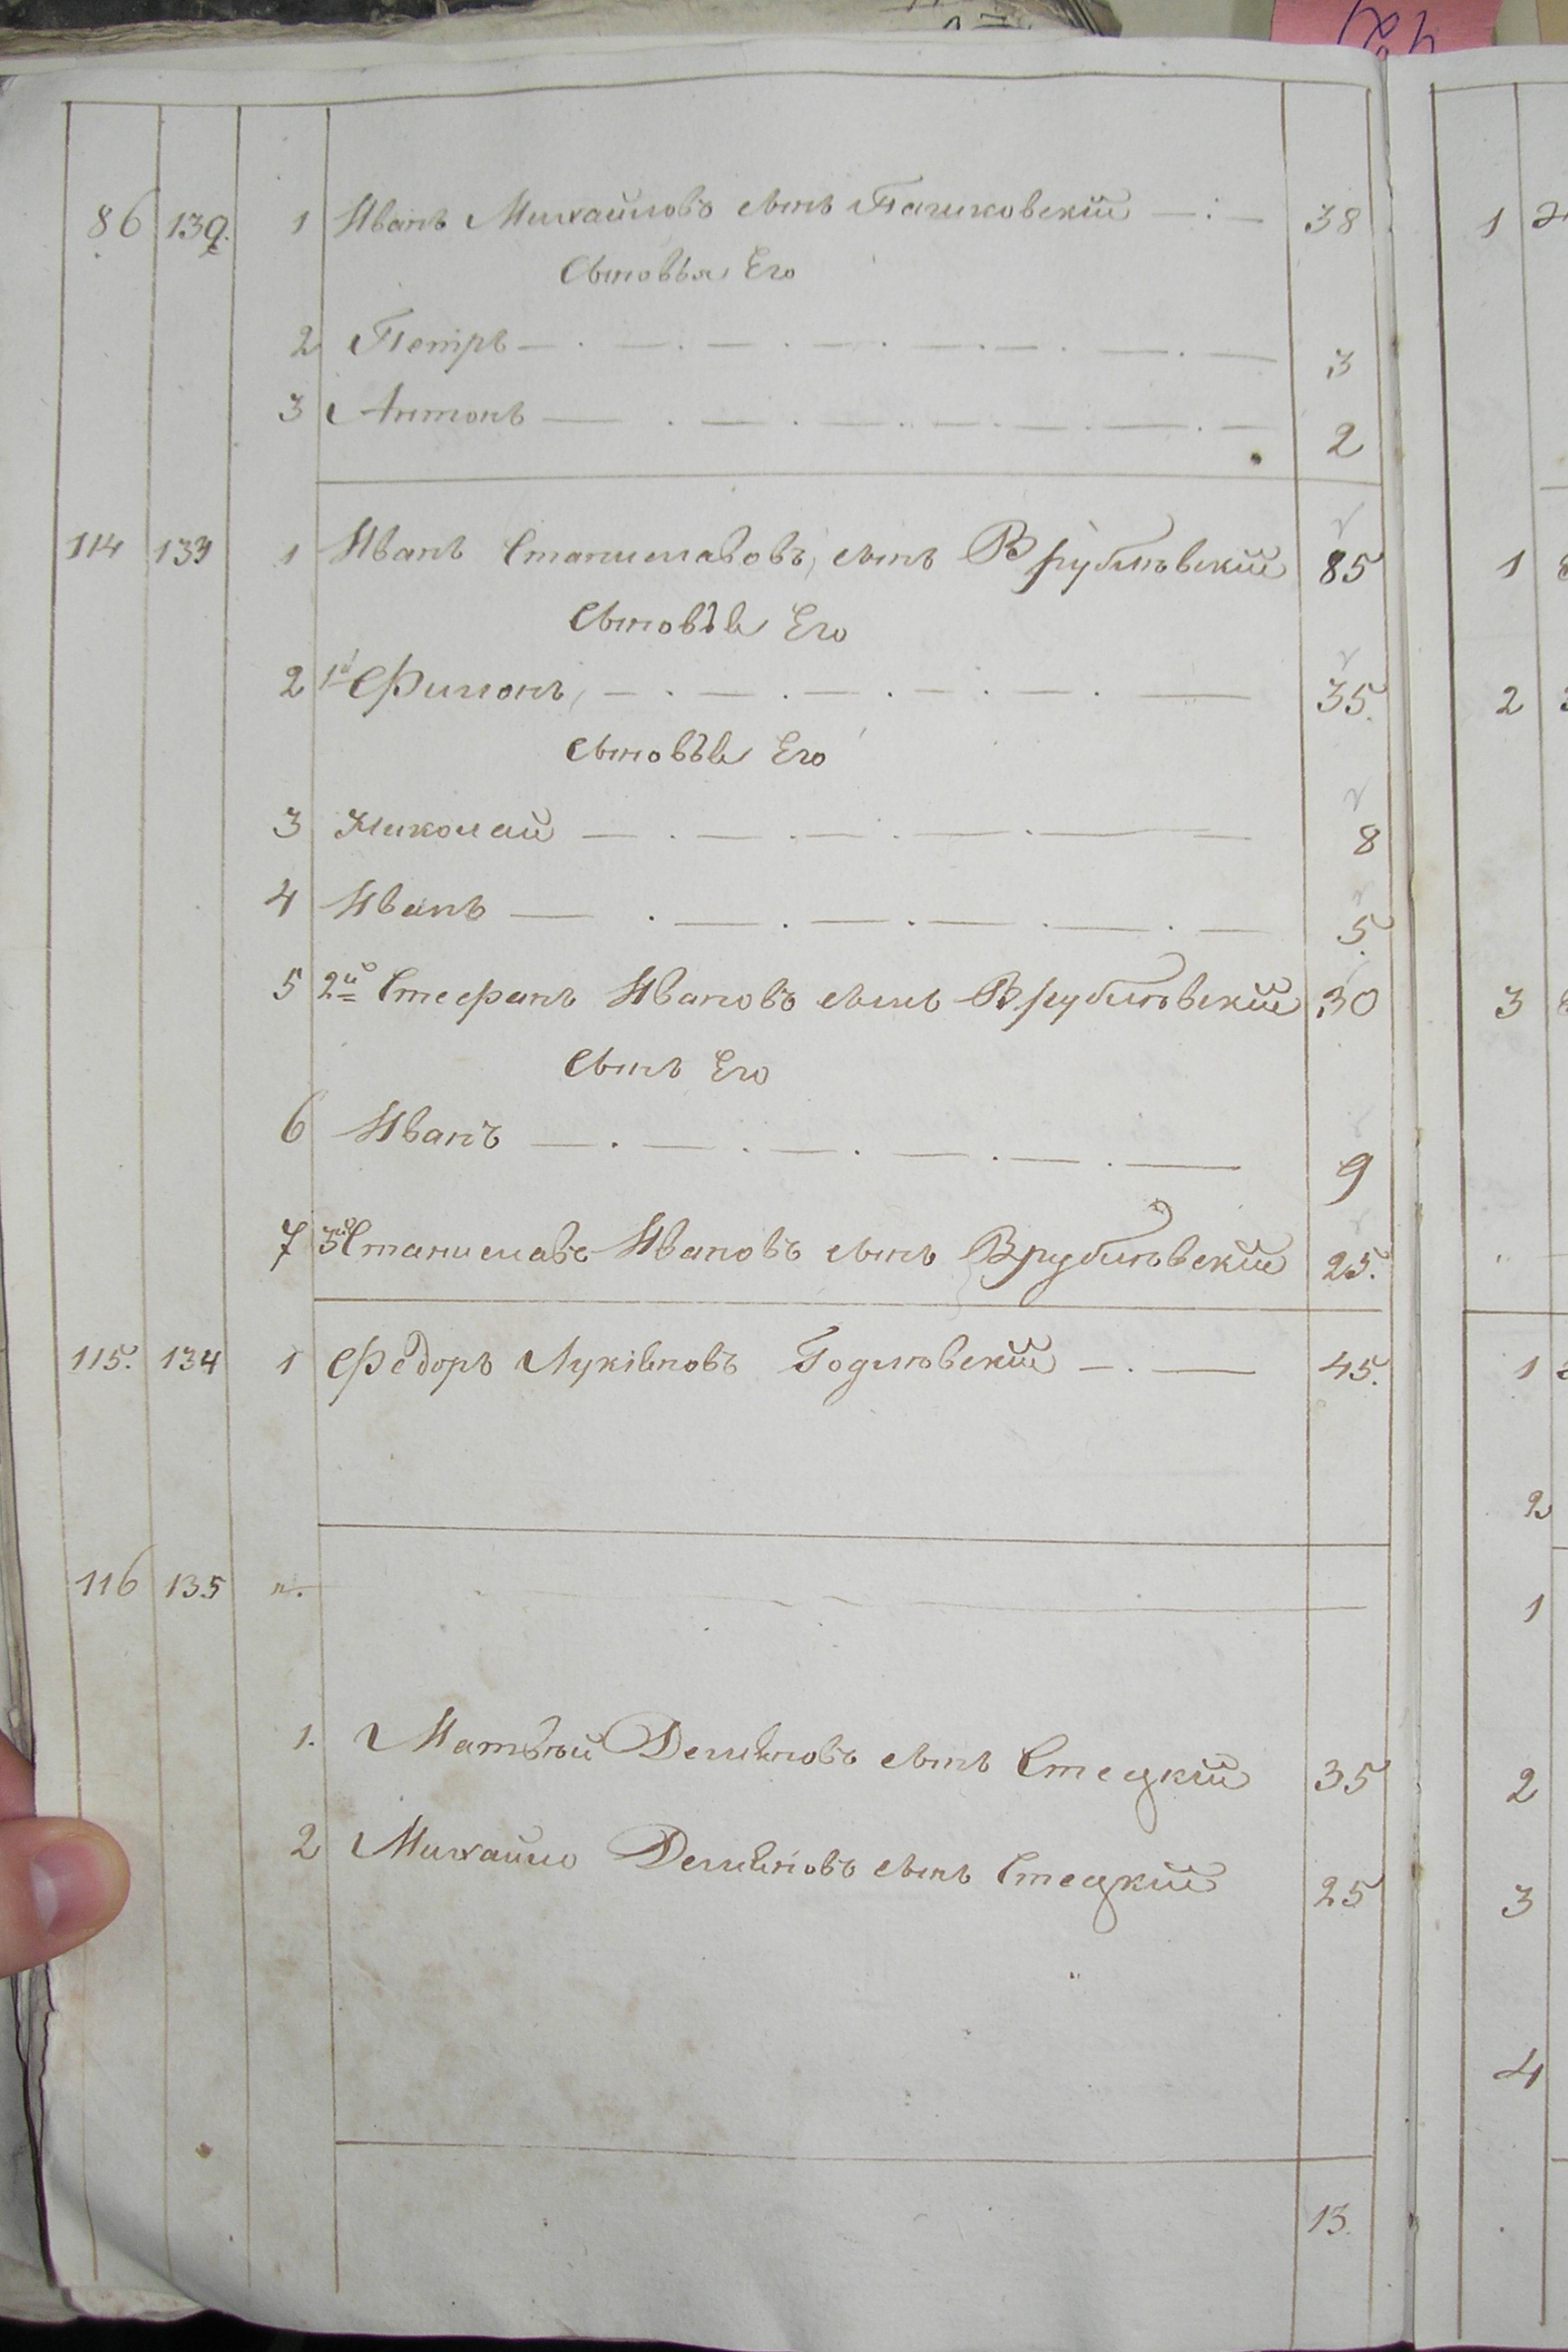 86 132. 1 Иванъ Михайловъ сынъ Пашковскій 38
Сыновья Его
2 Петръ 3
3 Антонъ 2
114 133 1 Иванъ Станиславовъ сынъ Врублѣвскій 85
Сыновѣя Его
2 1й Филонъ 35
Сыновѣя Его
3 Николай 8
4 Иванъ 5
5 2й Стефанъ Ивановъ сынъ Врублѣвскій 30
Сынъ Его
6 Иванъ 9
7 3й Станиславъ Ивановъ сынъ Врублѣвскій 25.
115. 134 1 Федоръ Лукіяновъ Годлѣвскій 45.
116 135
1. Матвѣй Демяновъ сынъ Стецкій 35
2 Михайло Демяновъ сынъ Стецкій 25
13.
1
1
2
3
1
2
1
2
3
4